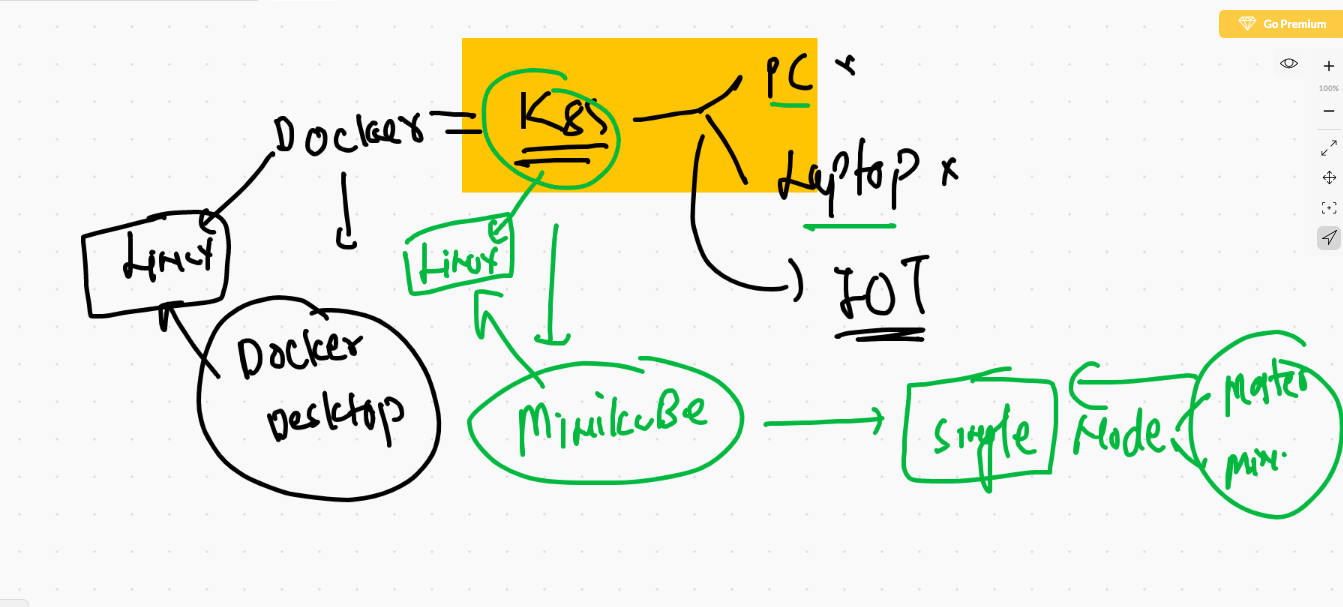 Go Premium
100%
Docker = K8s
PC x
Laptop x
IOT
Linux
Linux
Docker
Desktop
MinikuBe
Single Node
Master
Min.